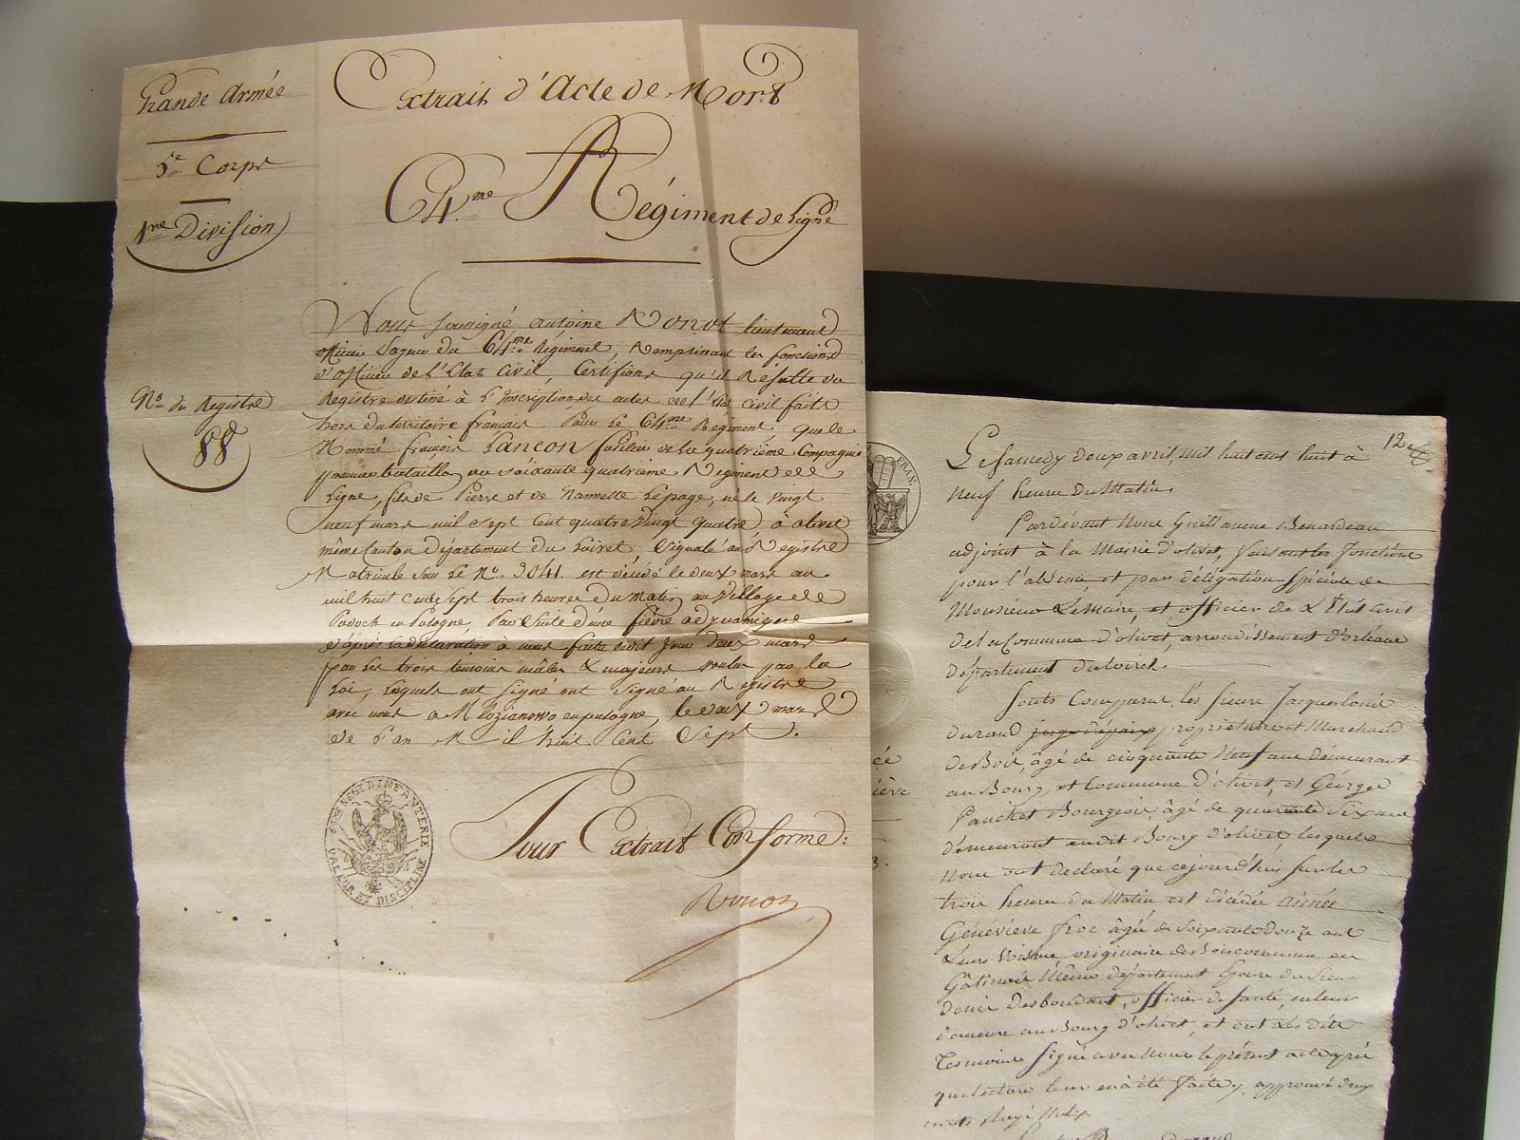 Grande Armée
5.e Corps
1.re Division
No. du Registre
88
Extrait d'Acte de Mort
64.me Régiment de Ligne
Nous soussigné antoine Ronot lieutenant
officier payeur du 64.me Régiment, Remplissant les fonctions
d'officier de l'Etat Civil, Certifions qu'il Résulte du
Registre destiné à L'inscription des actes de l'état civil faits
hors du territoire français Pour Le 64.me Régiment, que le
Nommé françois Lançon fusilier de la quatrième Compagnie
premier bataillon du soixante quatrieme Régiment de
Ligne, fils de Pierre et de Nannette Lepage, né le vingt
neuf mars mil sept cent quatre vingt quatre à olivet
même canton Département du Loiret, signalé au Registre
Matricule sous Le No. 3041. est décédé le deux mars an
mil huit cent sept trois heures du matin au village de
en Pologne, Par Suite d'une fièvre adynamique
d'après la déclaration à nous faite Jour deux mars
par les trois temoins mâles & majeurs voulu par la
Loi, lesquels ont signé ont signé au Registre
avec nous a en pologne, le deux mars
de l'an Mil huit Cent Sept.
Pour Extrait Conforme:
Ronot
64me REGIMENT D'INFANTERIE
VALEUR ET DISCIPLINE
FRAN.
12
Le samedy deux avril, mil huit cent huit à
neuf heure du Matin.
Pardevant Nous Guillaume Benardeau
adjoint à la Mairie d'olivet, faisant les fonctions
pour l'absence et par délégation spéciale de
Monsieur Lemaire, et officier de L'Etat civil
de la Commune d'olivet, arrondissement d'orléans
département du loiret.
Sont Comparus, les sieurs Jacques louis
durand propriétaire et Marchand
de Bois, âgé de cinquante Neuf ans demeurant
au Bourg et Commune D'olivet, et George
Pauchet Bourgeois, âgé de quarante Six ans
demeurant au dit Bourg d'olivet, lesquels
Nous ont declaré que cejourd'hui sur les
trois heures du Matin est décédée aimée
Genevieve froc âgée de Soixante douze ans
originaire de Boiscommun en
Gâtinois Même département Epouse du Sieur
denis Desboudant, officier de santé, en leur
demeure au Bourg d'olivet, et ont Les dits
Tesmoins Signé avec Nous le présent acte après
que lecture leur en a été faite, approuvé deux
mots Rayé Nuls.